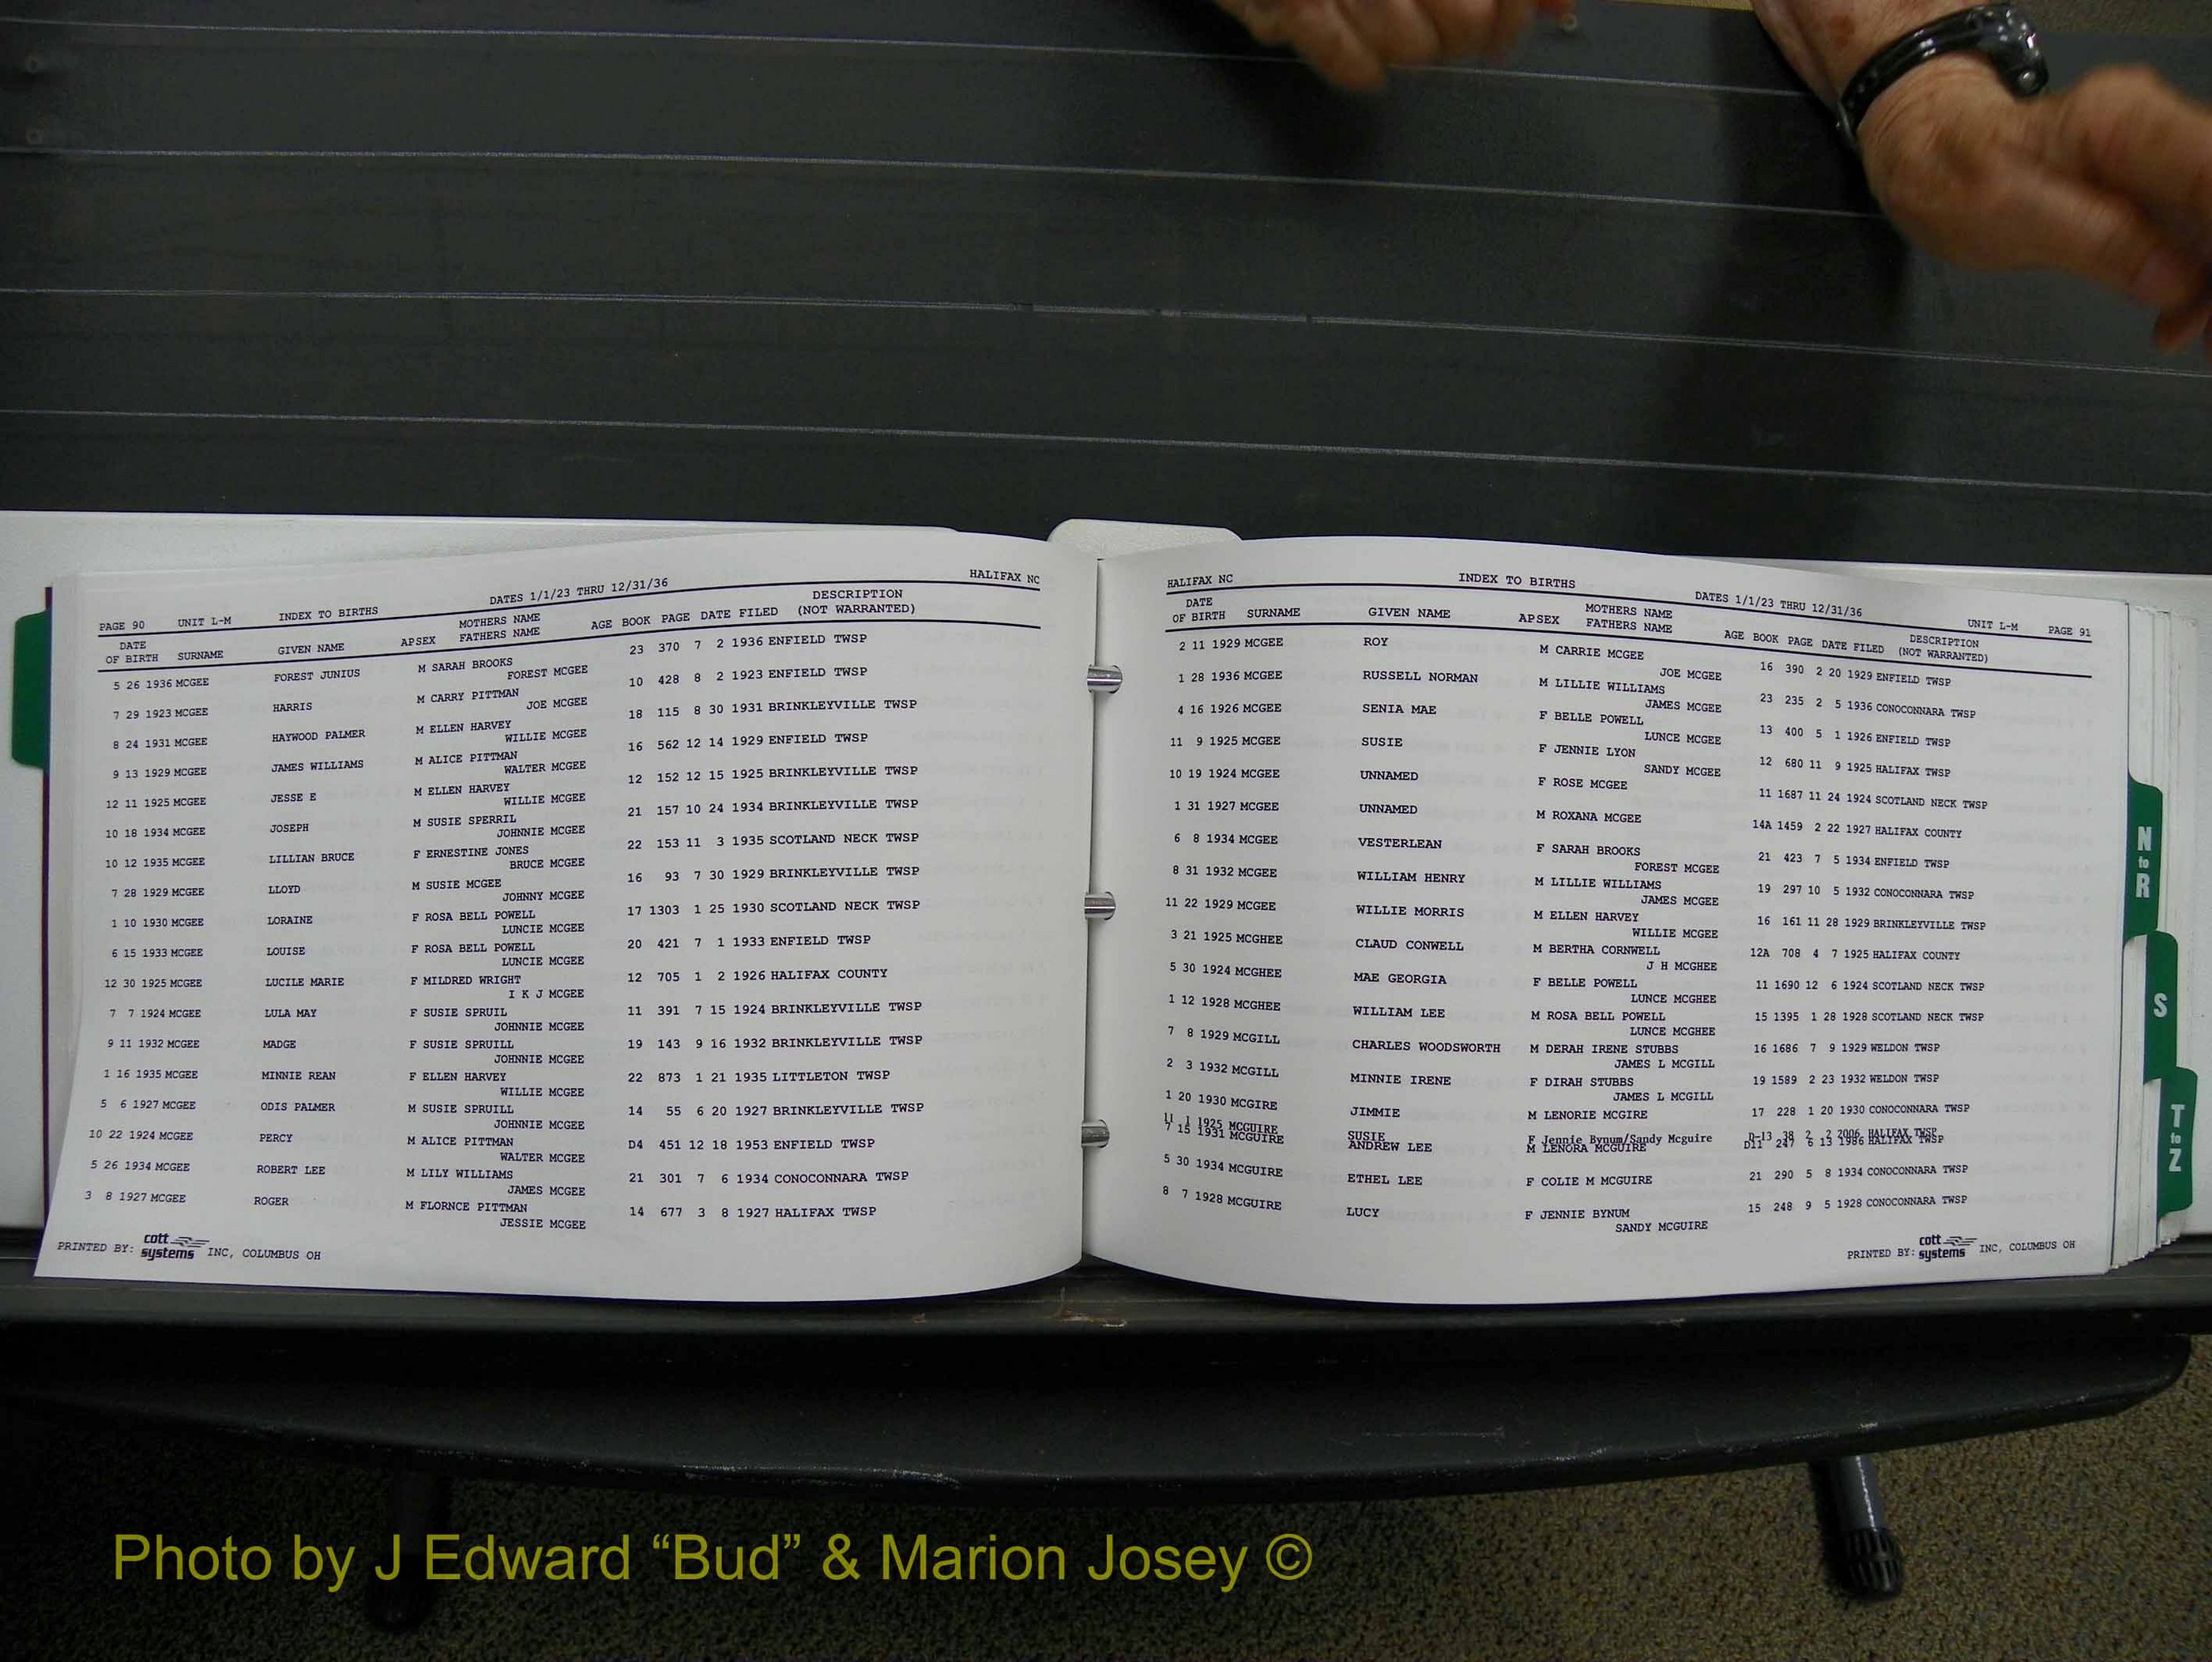 PAGE 90 UNIT L-M INDEX TO BIRTHS DATES 1/1/23 THRU 12/31/36 HALIFAX NC
DATE OF BIRTH SURNAME GIVEN NAME APSEX MOTHERS NAME FATHERS NAME AGE BOOK PAGE DATE FILED DESCRIPTION (NOT WARRANTED)
5 26 1936 MCGEE FOREST JUNIUS M SARAH BROOKS 23 370 7 2 1936 ENFIELD TWSP
FOREST MCGEE
7 29 1923 MCGEE HARRIS M CARRY PITTMAN 10 428 8 2 1923 ENFIELD TWSP
JOE MCGEE
8 24 1931 MCGEE HAYWOOD PALMER M ELLEN HARVEY 18 115 8 30 1931 BRINKLEYVILLE TWSP
WILLIE MCGEE
9 13 1929 MCGEE JAMES WILLIAMS M ALICE PITTMAN 16 562 12 14 1929 ENFIELD TWSP
WALTER MCGEE
12 11 1925 MCGEE JESSE E M ELLEN HARVEY 12 152 12 15 1925 BRINKLEYVILLE TWSP
WILLIE MCGEE
10 18 1934 MCGEE JOSEPH M SUSIE SPERRIL 21 157 10 24 1934 BRINKLEYVILLE TWSP
JOHNNIE MCGEE
10 12 1935 MCGEE LILLIAN BRUCE F ERNESTINE JONES 22 153 11 3 1935 SCOTLAND NECK TWSP
BRUCE MCGEE
7 28 1929 MCGEE LLOYD M SUSIE MCGEE 16 93 7 30 1929 BRINKLEYVILLE TWSP
JOHNNY MCGEE
1 10 1930 MCGEE LORAINE F ROSA BELL POWELL 17 1303 1 25 1930 SCOTLAND NECK TWSP
LUNCIE MCGEE
6 15 1933 MCGEE LOUISE F ROSA BELL POWELL 20 421 7 1 1933 ENFIELD TWSP
LUNCIE MCGEE
12 30 1925 MCGEE LUCILE MARIE F MILDRED WRIGHT 12 705 1 2 1926 HALIFAX COUNTY
I K J MCGEE
7 7 1924 MCGEE LULA MAY F SUSIE SPRUIL 11 391 7 15 1924 BRINKLEYVILLE TWSP
JOHNNIE MCGEE
9 11 1932 MCGEE MADGE F SUSIE SPRUILL 19 143 9 16 1932 BRINKLEYVILLE TWSP
JOHNNIE MCGEE
1 16 1935 MCGEE MINNIE REAN F ELLEN HARVEY 22 873 1 21 1935 LITTLETON TWSP
WILLIE MCGEE
5 6 1927 MCGEE ODIS PALMER M SUSIE SPRUILL 14 55 6 20 1927 BRINKLEYVILLE TWSP
JOHNNIE MCGEE
10 22 1924 MCGEE PERCY M ALICE PITTMAN D4 451 12 18 1953 ENFIELD TWSP
WALTER MCGEE
5 26 1934 MCGEE ROBERT LEE M LILY WILLIAMS 21 301 7 6 1934 CONOCONNARA TWSP
JAMES MCGEE
3 8 1927 MCGEE ROGER M FLORNCE PITTMAN 14 677 3 8 1927 HALIFAX TWSP
JESSIE MCGEE
PRINTED BY: cott systems INC, COLUMBUS OH
HALIFAX NC INDEX TO BIRTHS DATES 1/1/23 THRU 12/31/36 UNIT L-M PAGE 91
DATE OF BIRTH SURNAME GIVEN NAME APSEX MOTHERS NAME FATHERS NAME AGE BOOK PAGE DATE FILED DESCRIPTION (NOT WARRANTED)
2 11 1929 MCGEE ROY M CARRIE MCGEE 16 390 2 20 1929 ENFIELD TWSP
JOE MCGEE
1 28 1936 MCGEE RUSSELL NORMAN M LILLIE WILLIAMS 23 235 2 5 1936 CONOCONNARA TWSP
JAMES MCGEE
4 16 1926 MCGEE SENIA MAE F BELLE POWELL 13 400 5 1 1926 ENFIELD TWSP
LUNCE MCGEE
11 9 1925 MCGEE SUSIE F JENNIE LYON 12 680 11 9 1925 HALIFAX TWSP
SANDY MCGEE
10 19 1924 MCGEE UNNAMED F ROSE MCGEE 11 1687 11 24 1924 SCOTLAND NECK TWSP
1 31 1927 MCGEE UNNAMED M ROXANA MCGEE 14A 1459 2 22 1927 HALIFAX COUNTY
6 8 1934 MCGEE VESTERLEAN F SARAH BROOKS 21 423 7 5 1934 ENFIELD TWSP
FOREST MCGEE
8 31 1932 MCGEE WILLIAM HENRY M LILLIE WILLIAMS 19 297 10 5 1932 CONOCONNARA TWSP
JAMES MCGEE
11 22 1929 MCGEE WILLIE MORRIS M ELLEN HARVEY 16 161 11 28 1929 BRINKLEYVILLE TWSP
WILLIE MCGEE
3 21 1925 MCGHEE CLAUD CONWELL M BERTHA CORNWELL 12A 708 4 7 1925 HALIFAX COUNTY
J H MCGHEE
5 30 1924 MCGHEE MAE GEORGIA F BELLE POWELL 11 1690 12 6 1924 SCOTLAND NECK TWSP
LUNCE MCGHEE
1 12 1928 MCGHEE WILLIAM LEE M ROSA BELL POWELL 15 1395 1 28 1928 SCOTLAND NECK TWSP
LUNCE MCGHEE
7 8 1929 MCGILL CHARLES WOODSWORTH M DERAH IRENE STUBBS 16 1686 7 9 1929 WELDON TWSP
JAMES L MCGILL
2 3 1932 MCGILL MINNIE IRENE F DIRAH STUBBS 19 1589 2 23 1932 WELDON TWSP
JAMES L MCGILL
1 20 1930 MCGIRE JIMMIE M LENORIE MCGIRE 17 228 1 20 1930 CONOCONNARA TWSP
11 1 1925 MCGUIRE SUSIE F Jennie Bynum/Sandy Mcguire D-13 38 2 2 2006 HALIFAX TWSP
7 15 1931 MCGUIRE ANDREW LEE M LENORA MCGUIRE D11 247 6 13 1986 HALIFAX TWSP
5 30 1934 MCGUIRE ETHEL LEE F COLIE M MCGUIRE 21 290 5 8 1934 CONOCONNARA TWSP
8 7 1928 MCGUIRE LUCY F JENNIE BYNUM 15 248 9 5 1928 CONOCONNARA TWSP
SANDY MCGUIRE
PRINTED BY: cott systems INC, COLUMBUS OH
N to R
S
T to Z
Photo by J Edward “Bud” & Marion Josey ©